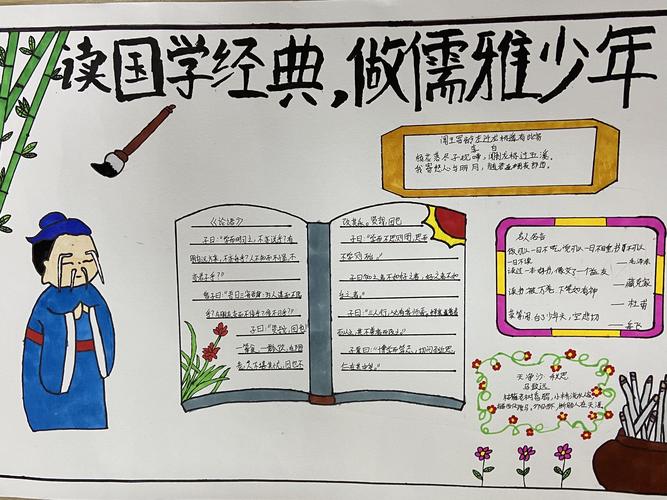 读国学经典,做儒雅少年
闻王昌龄左迁龙标遥有此寄
李白
杨花落尽子规啼,闻道龙标过五溪。
我寄愁心与明月,随君直到夜郎西。
《论语》
子曰:"学而时习之,不亦说乎?有
朋自远方来,不亦乐乎?人不知而不愠,不
亦君子乎?"
曾子曰:"吾日三省吾身:为人谋而不忠
乎?与朋友交而不信乎?传不习乎?"
子曰:"贤哉,回也
一箪食,一瓢饮,在陋
巷,人不堪其忧,回也不
改其乐。贤哉,回也
子曰:"学而不思则罔,思而
不学则殆。"
子曰:"知之者不如好之者,好之者不如
乐之者。"
子曰:"三人行,必有我师焉,择其善者而
从之,其不善者而改之。"
子夏曰:"博学而笃志,切问而近思,
仁在其中矣。"
名人名言
饭可以一日不吃,觉可以一日不睡,书不可以
一日不读 ——毛泽东
读过一本好书,像交了一个益友
——臧克家
读书破万卷,下笔如有神
——杜甫
莫等闲,白了少年头,空悲切
——岳飞
天净沙·秋思
马致远
枯藤老树昏鸦,小桥流水人家
古道西风瘦马,夕阳西下,断肠人在天涯